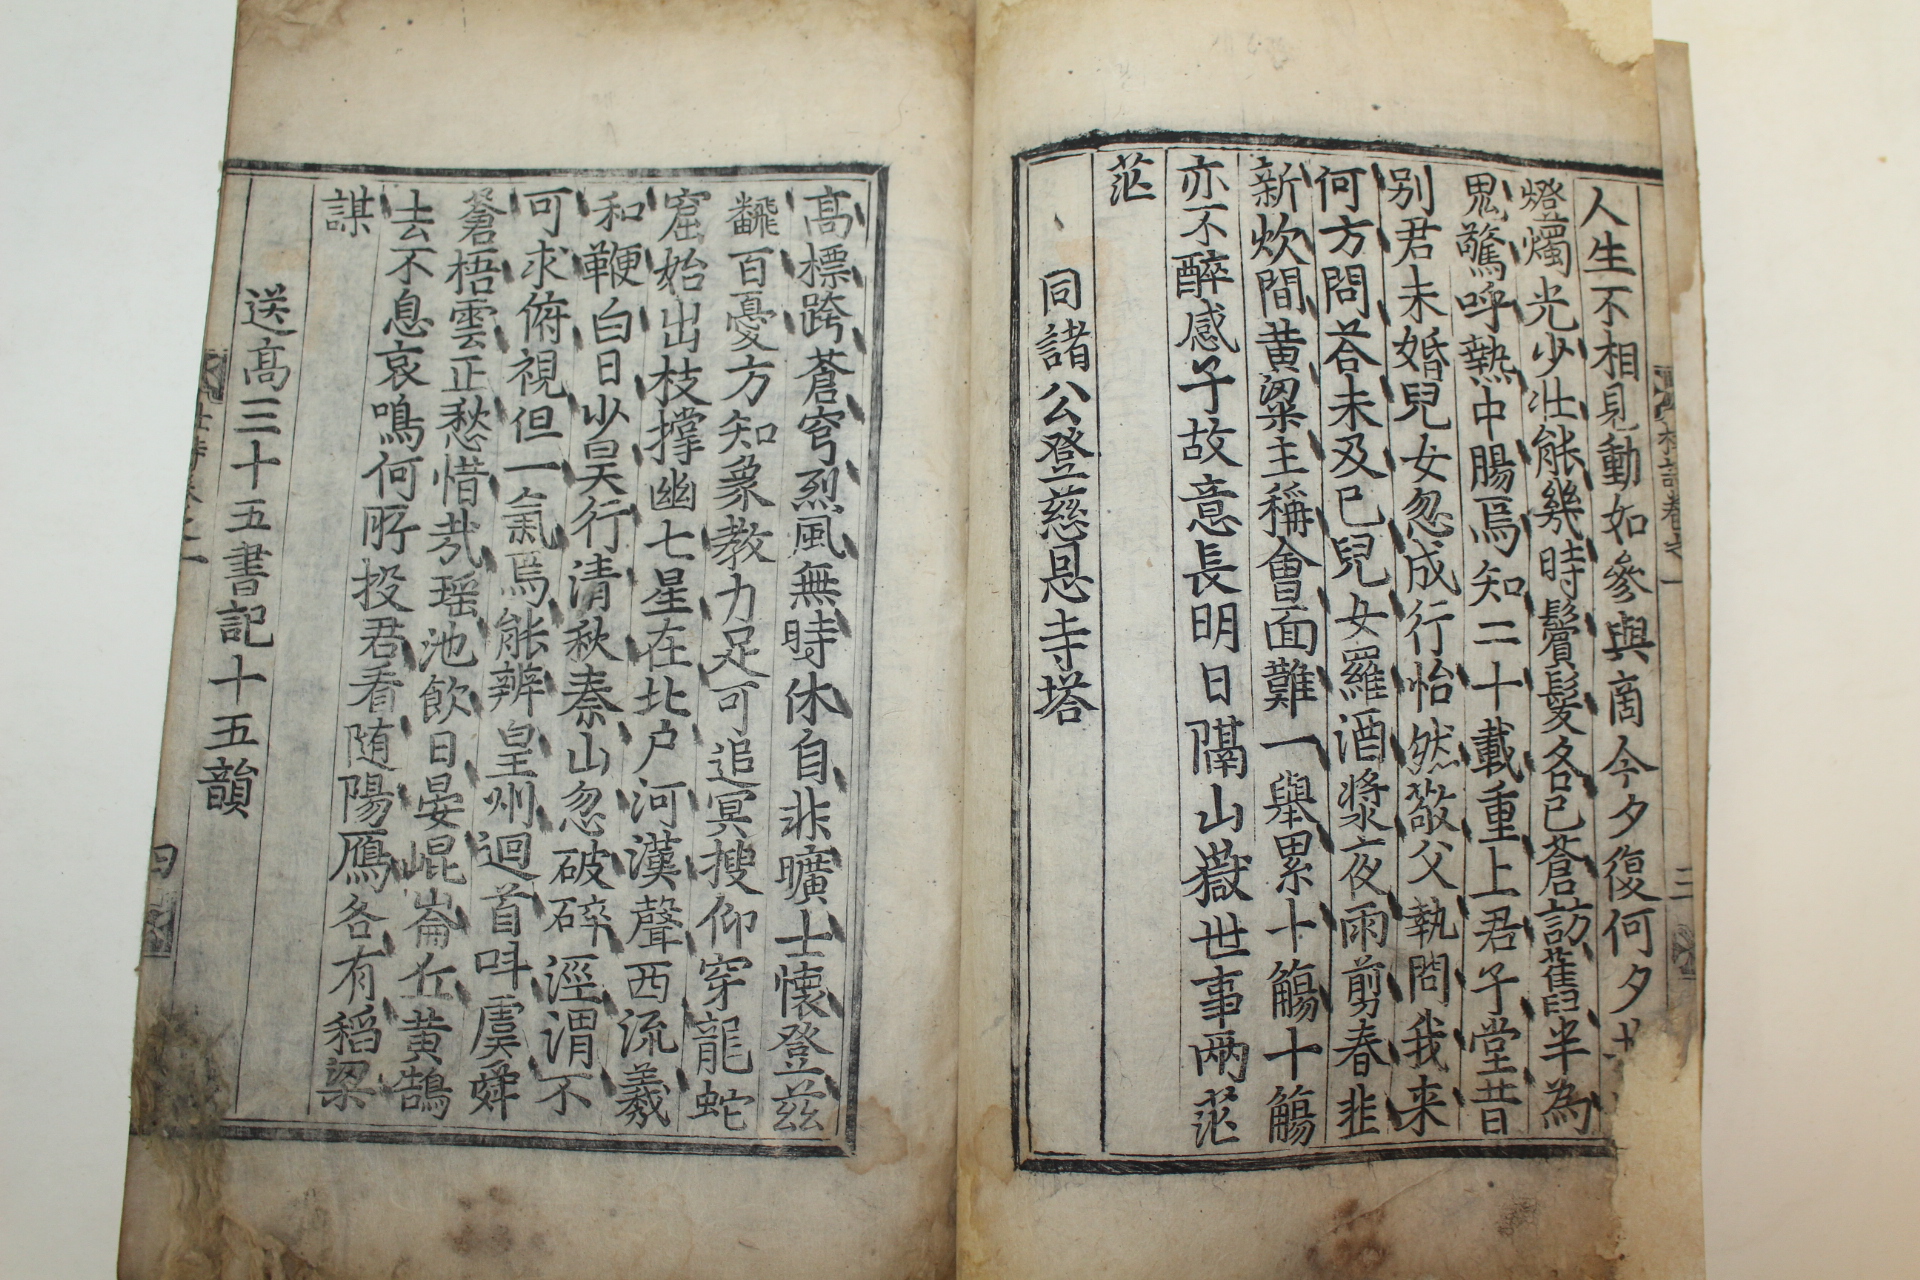 人生不相見動如參與商今夕復何夕共
燈燭光少壯能幾時鬢髮各已蒼訪舊半為
鬼驚呼熱中腸焉知二十載重上君子堂昔
別君未婚兒女忽成行怡然敬父執問我来
何方問答未及已兒女羅酒漿夜雨剪春韭
新炊間黄粱主稱會面難一舉累十觴十觴
亦不醉感子故意長明日隔山嶽世事兩茫
茫
同諸公登慈恩寺塔
高標跨蒼穹烈風無時休自非曠士懷登兹
飜百憂方知象教力足可追冥搜仰穿龍蛇
窟始出枝撑幽七星在北户河漢聲西流羲
和鞭白日少昊行清秋秦山忽破碎涇渭不
可求俯視但一氣焉能辨皇州迴首叫虞舜
蒼梧雲正愁惜哉瑶池飲日晏崐崙丘黄鵠
去不息哀鳴何所投君看随陽鴈各有稻粱
謀
送高三十五書記十五韻